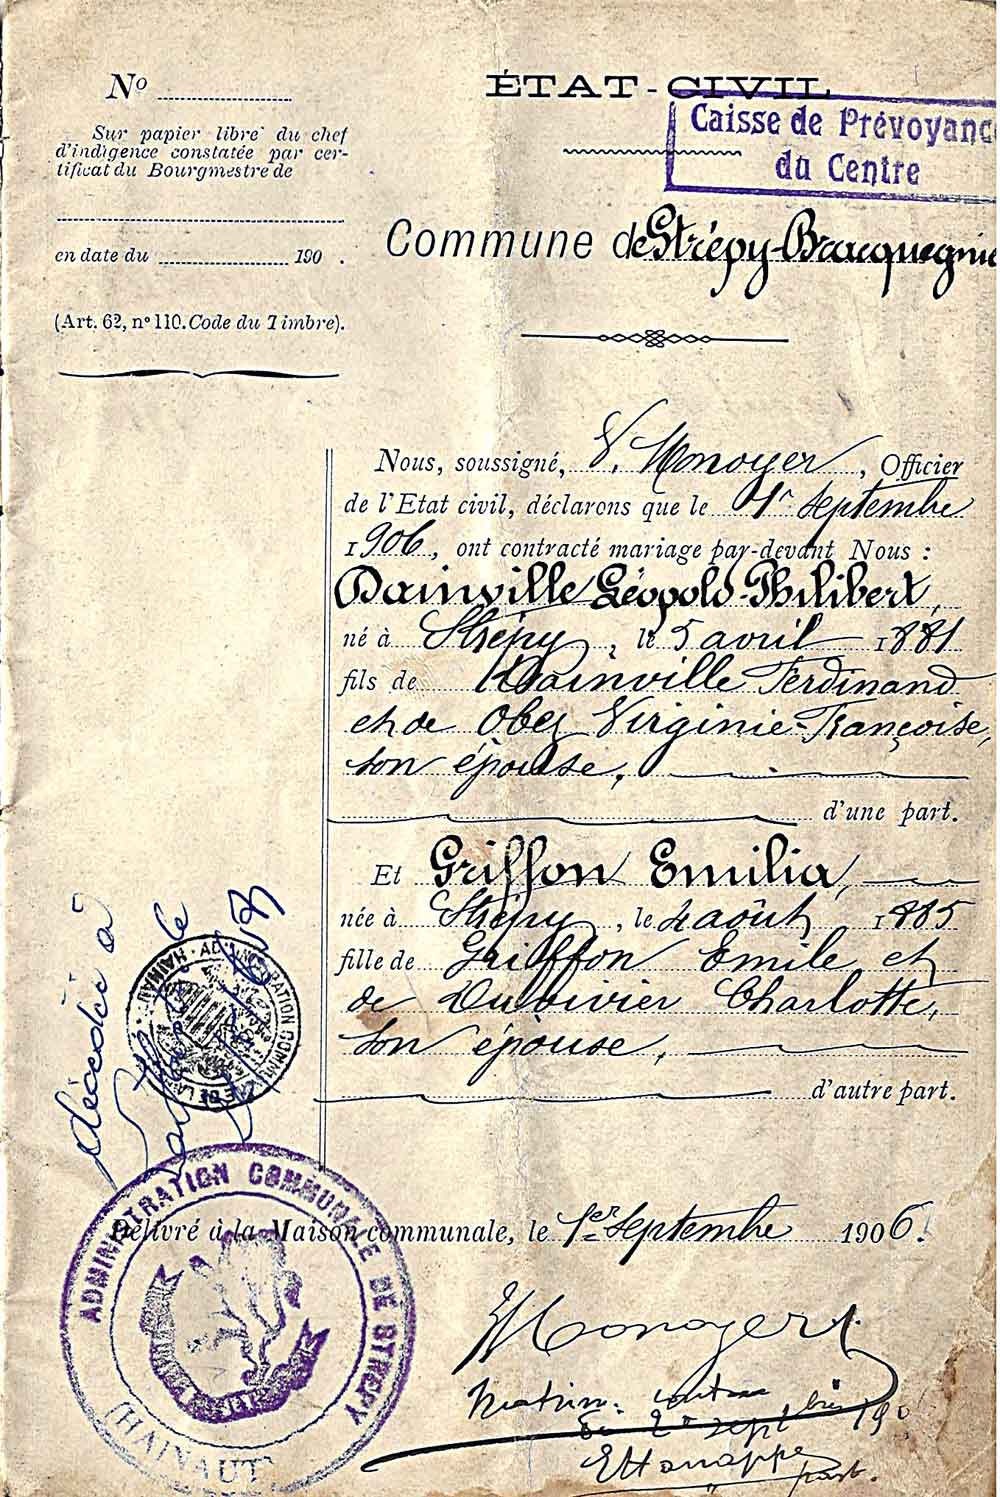 No
Sur papier libre du chef
d'indigence constatée par cer-
tificat du Bourgmestre de
en date du 190 .
(Art. 62, no 110. Code du Timbre).
ÉTAT-CIVIL
Caisse de Prévoyance
du Centre
Commune de Strépy-Bracquegnie
Nous, soussigné, V. Monoyer, Officier
de l'Etat civil, déclarons que le 1r septembre
1906, ont contracté mariage par-devant Nous :
Dainville Léopold-Philibert,
né à Strépy, le 5 avril 1881
fils de Dainville Ferdinand
et de Obez Virginie-Françoise,
son épouse,
d'une part.
Et Griffon Emilia,
née à Strépy, le 4 août 1885
fille de Griffon Emile et
de Duvivier Charlotte,
son épouse,
d'autre part.
décédée à
le
ADMINISTRATION COMMUNALE DE STRÉPY
(HAINAUT)
Délivré à la Maison communale, le 1er septembre 1906.
VMonoyer
2 sept